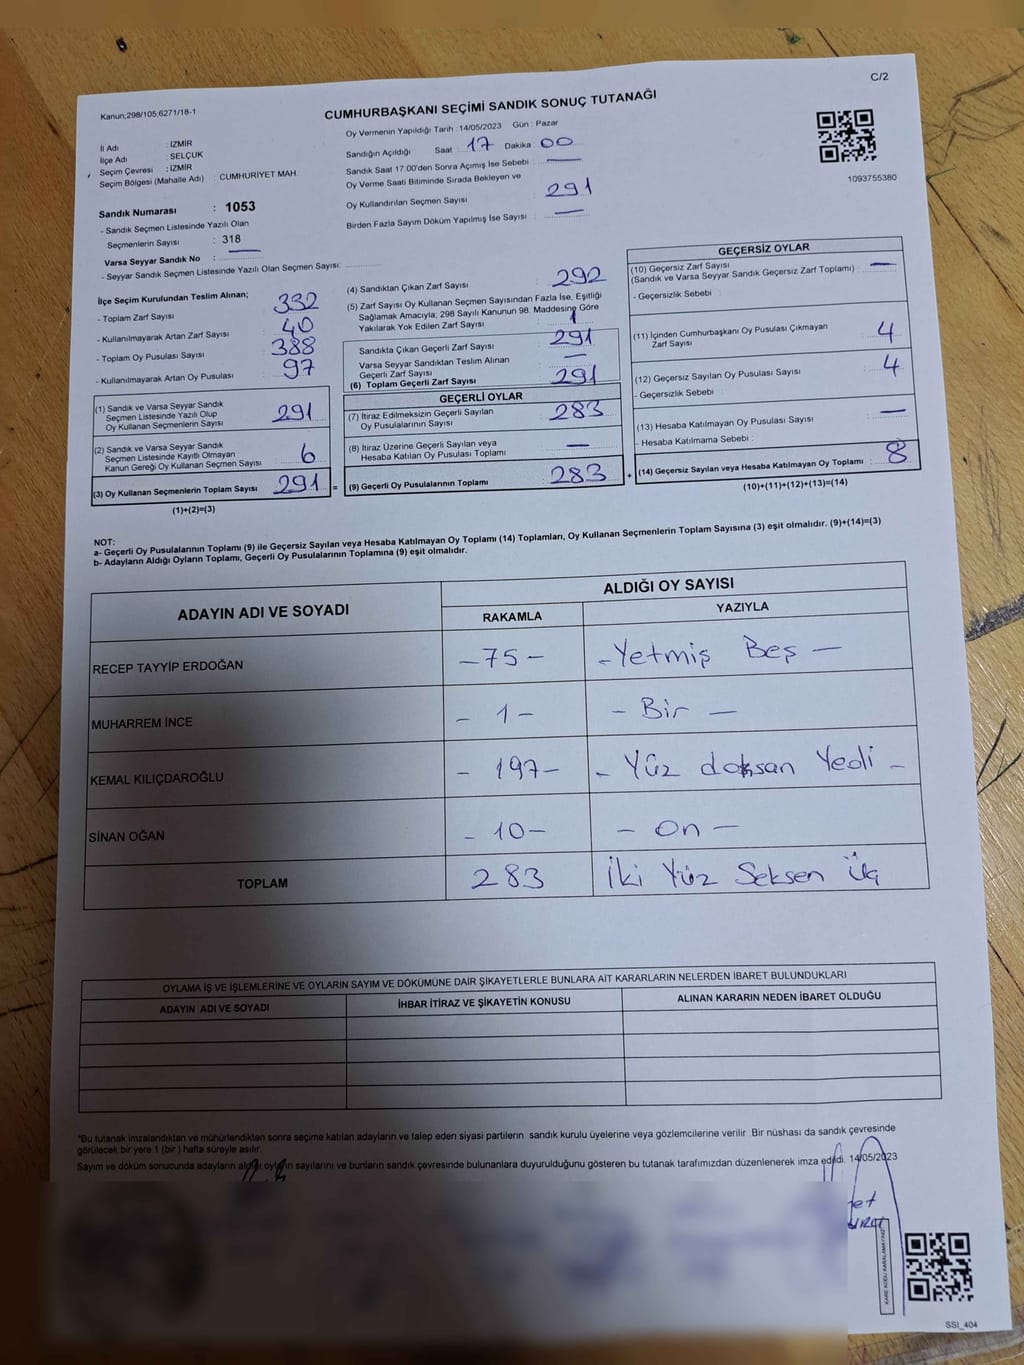 C/2
Kanun;298/105;6271/18-1
CUMHURBAŞKANI SEÇİMİ SANDIK SONUÇ TUTANAĞI
Oy Vermenin Yapıldığı Tarih : 14/05/2023 Gün : Pazar
İl Adı : İZMİR
İlçe Adı : SELÇUK
Seçim Çevresi : İZMİR
Seçim Bölgesi (Mahalle Adı) : CUMHURİYET MAH.
Sandığın Açıldığı Saat : 17 Dakika : 00
Sandık Saat 17:00'den Sonra Açımış İse Sebebi : —
Oy Verme Saati Bitiminde Sırada Bekleyen ve
Oy Kullandırılan Seçmen Sayısı : 291
Birden Fazla Sayım Döküm Yapılmış İse Sayısı : —
1093755380
Sandık Numarası : 1053
- Sandık Seçmen Listesinde Yazılı Olan
Seçmenlerin Sayısı : 318
Varsa Seyyar Sandık No : —
- Seyyar Sandık Seçmen Listesinde Yazılı Olan Seçmen Sayısı:
İlçe Seçim Kurulundan Teslim Alınan;
- Toplam Zarf Sayısı 332
- Kullanılmayarak Artan Zarf Sayısı 40
- Toplam Oy Pusulası Sayısı 388
- Kullanılmayarak Artan Oy Pusulası 97
(1) Sandık ve Varsa Seyyar Sandık
Seçmen Listesinde Yazılı Olup
Oy Kullanan Seçmenlerin Sayısı 291
(2) Sandık ve Varsa Seyyar Sandık
Seçmen Listesinde Kayıtlı Olmayan
Kanun Gereği Oy Kullanan Seçmen Sayısı 6
(3) Oy Kullanan Seçmenlerin Toplam Sayısı 291 =
(1)+(2)=(3)
(4) Sandıktan Çıkan Zarf Sayısı 292
(5) Zarf Sayısı Oy Kullanan Seçmen Sayısından Fazla İse, Eşitliği
Sağlamak Amacıyla; 298 Sayılı Kanunun 98. Maddesine Göre
Yakılarak Yok Edilen Zarf Sayısı 1
Sandıkta Çıkan Geçerli Zarf Sayısı 291
Varsa Seyyar Sandıktan Teslim Alınan
Geçerli Zarf Sayısı —
(6) Toplam Geçerli Zarf Sayısı 291
GEÇERLİ OYLAR
(7) İtiraz Edilmeksizin Geçerli Sayılan
Oy Pusulalarının Sayısı 283
(8) İtiraz Üzerine Geçerli Sayılan veya
Hesaba Katılan Oy Pusulası Toplamı —
(9) Geçerli Oy Pusulalarının Toplamı 283 +
GEÇERSİZ OYLAR
(10) Geçersiz Zarf Sayısı
(Sandık ve Varsa Seyyar Sandık Geçersiz Zarf Toplamı) : —
- Geçersizlik Sebebi :
(11) İçinden Cumhurbaşkanı Oy Pusulası Çıkmayan
Zarf Sayısı : 4
(12) Geçersiz Sayılan Oy Pusulası Sayısı : 4
- Geçersizlik Sebebi :
(13) Hesaba Katılmayan Oy Pusulası Sayısı : —
- Hesaba Katılmama Sebebi :
(14) Geçersiz Sayılan veya Hesaba Katılmayan Oy Toplamı : 8
(10)+(11)+(12)+(13)=(14)
NOT:
a- Geçerli Oy Pusulalarının Toplamı (9) ile Geçersiz Sayılan veya Hesaba Katılmayan Oy Toplamı (14) Toplamları, Oy Kullanan Seçmenlerin Toplam Sayısına (3) eşit olmalıdır. (9)+(14)=(3)
b- Adayların Aldığı Oyların Toplamı, Geçerli Oy Pusulalarının Toplamına (9) eşit olmalıdır.
ADAYIN ADI VE SOYADI ALDIĞI OY SAYISI
RAKAMLA YAZIYLA
RECEP TAYYİP ERDOĞAN -75- -Yetmiş Beş-
MUHARREM İNCE -1- -Bir-
KEMAL KILIÇDAROĞLU -197- -Yüz doksan Yedi-
SİNAN OĞAN -10- -On-
TOPLAM 283 İki Yüz Seksen Üç
OYLAMA İŞ VE İŞLEMLERİNE VE OYLARIN SAYIM VE DÖKÜMÜNE DAİR ŞİKAYETLERLE BUNLARA AİT KARARLARIN NELERDEN İBARET BULUNDUKLARI
ADAYIN ADI VE SOYADI İHBAR İTİRAZ VE ŞİKAYETİN KONUSU ALINAN KARARIN NEDEN İBARET OLDUĞU
*Bu tutanak imzalandıktan ve mühürlendikten sonra seçime katılan adayların ve talep eden siyasi partilerin sandık kurulu üyelerine veya gözlemcilerine verilir. Bir nüshası da sandık çevresinde
görülecek bir yere 1 (bir ) hafta süreyle asılır.
Sayım ve döküm sonucunda adayların aldığı oyların sayılarını ve bunların sandık çevresinde bulunanlara duyurulduğunu gösteren bu tutanak tarafımızdan düzenlenerek imza edildi. 14/05/2023
KARE KODU KARALAMAYINIZ
SSI_404